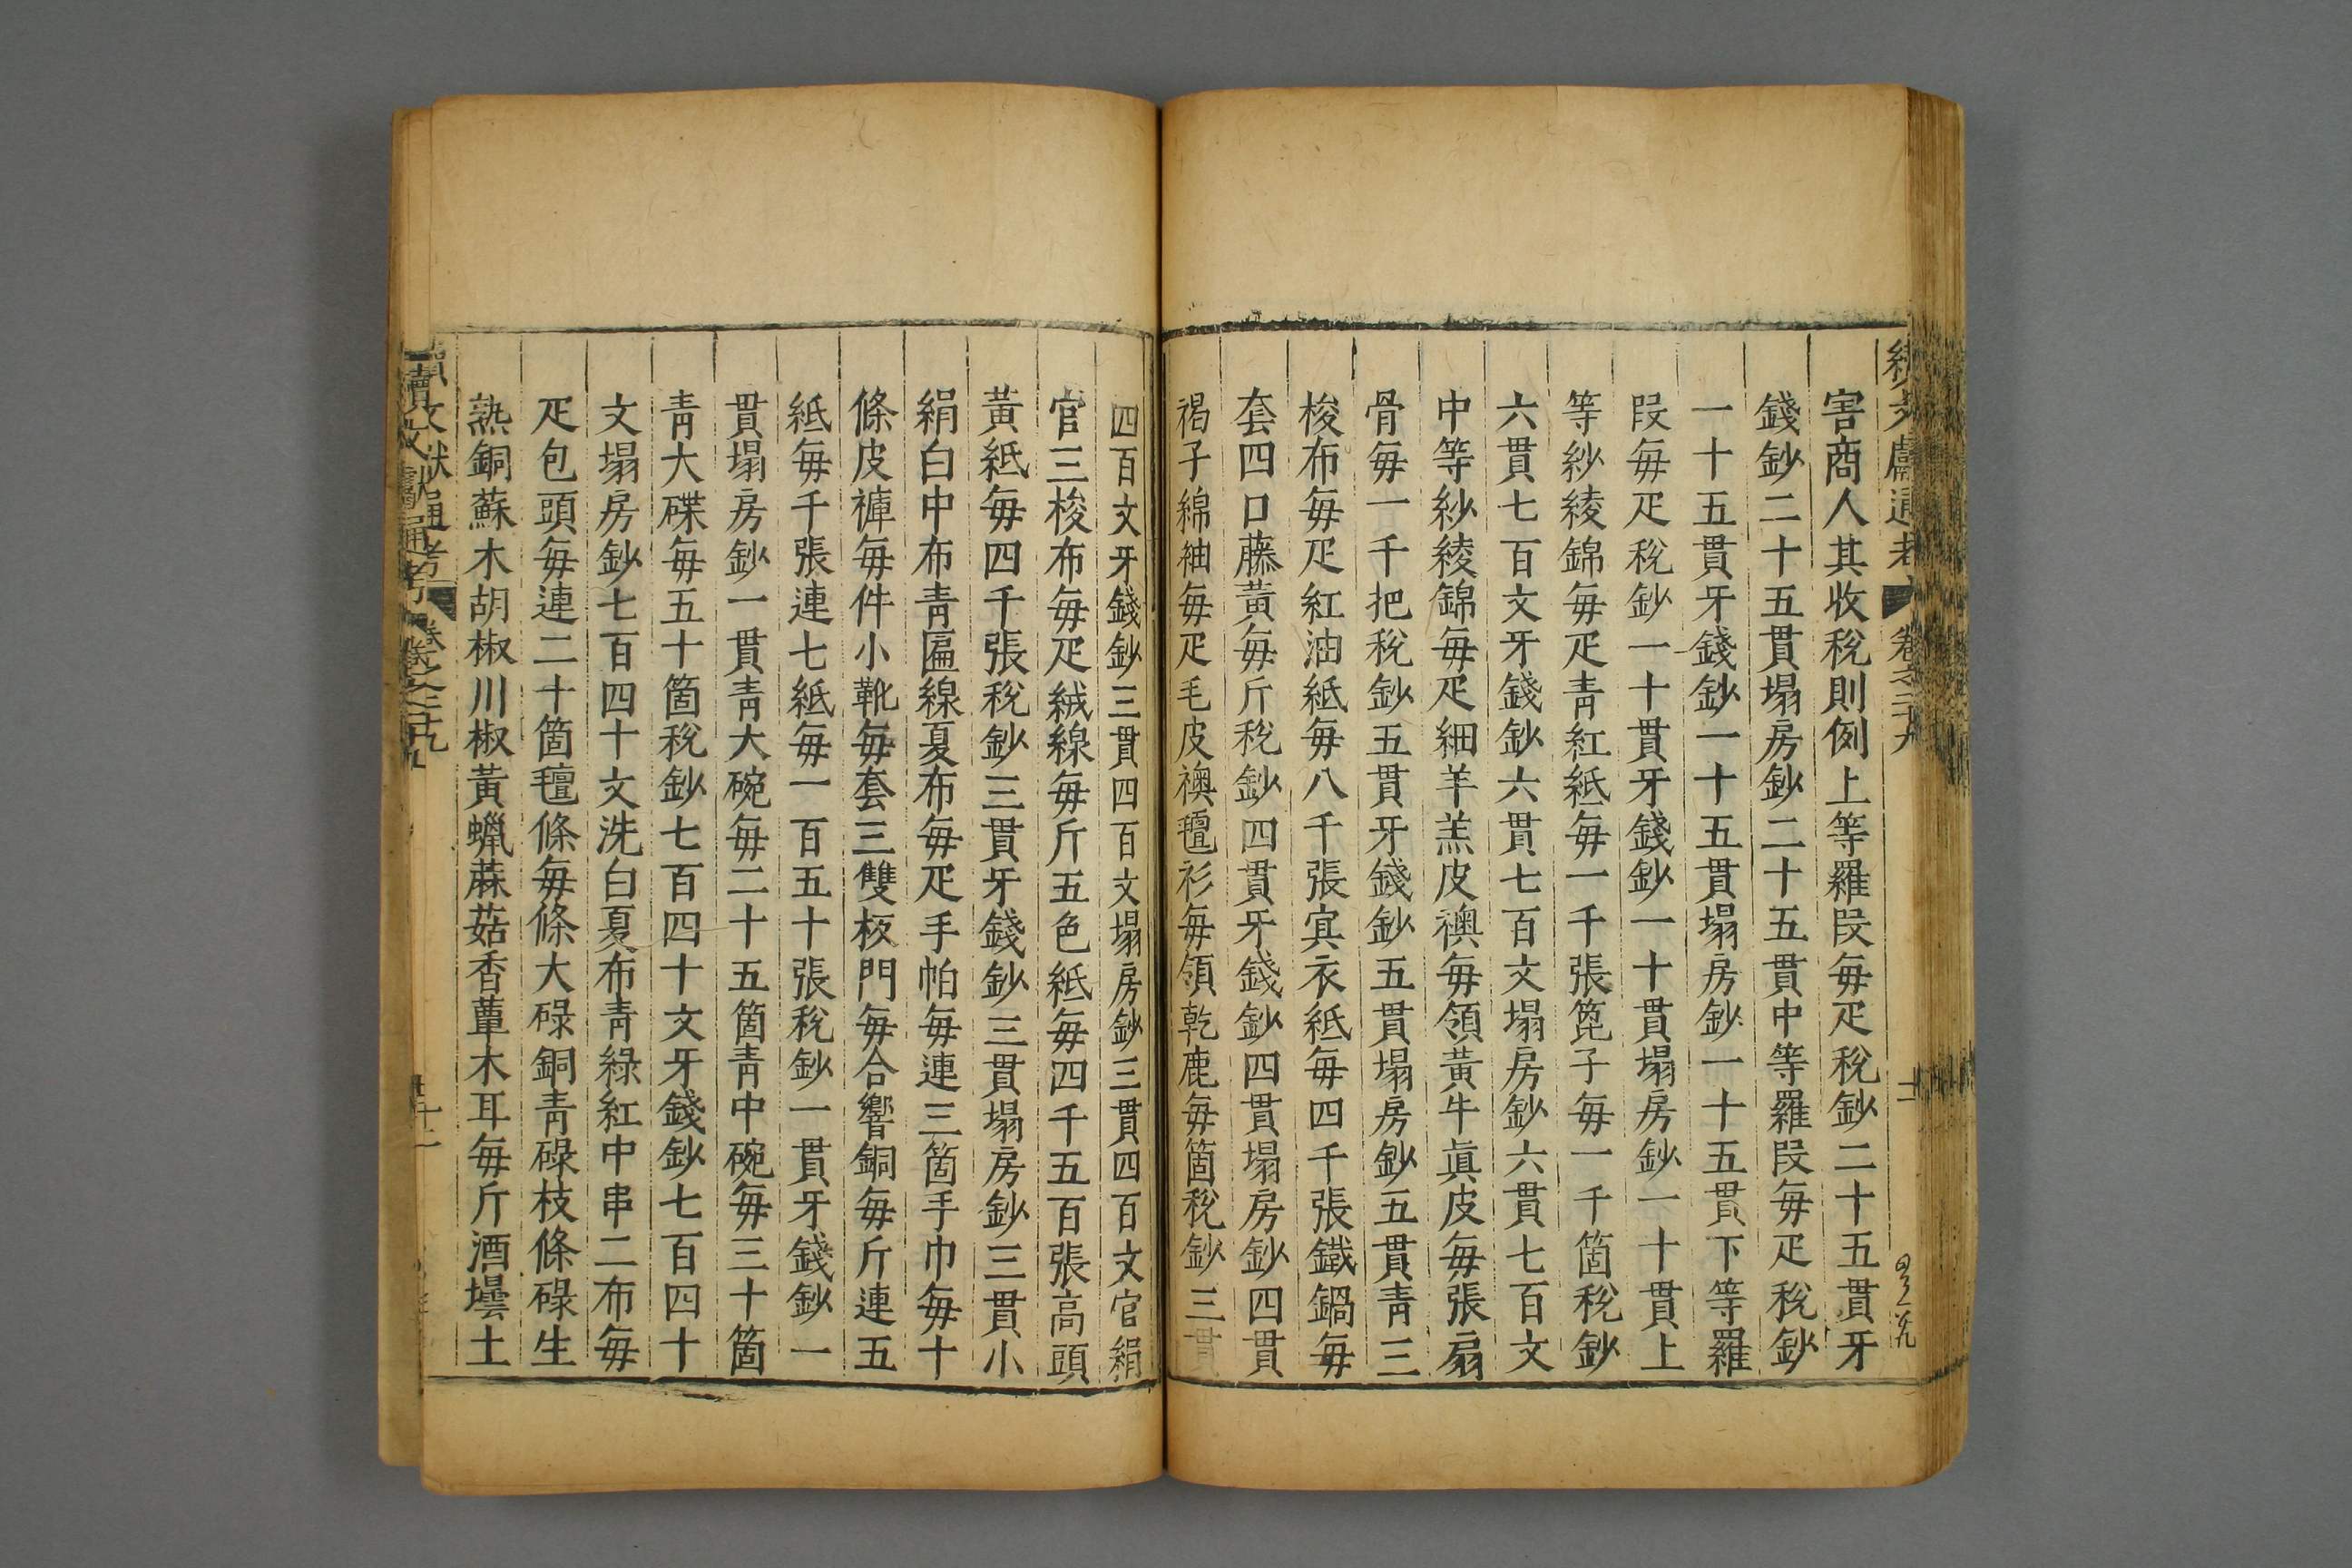 續文獻通考 卷之二十九
害商人其收稅則例上等羅段每疋稅鈔二十五貫牙
錢鈔二十五貫塌房鈔二十五貫中等羅段每疋稅鈔
一十五貫牙錢鈔一十五貫塌房鈔一十五貫下等羅
段每疋稅鈔一十貫牙錢鈔一十貫塌房鈔一十貫上
等紗綾錦每疋青紅紙每一千張箆子每一千箇稅鈔
六貫七百文牙錢鈔六貫七百文塌房鈔六貫七百文
中等紗綾錦每疋細羊羔皮襖每領黃牛真皮每張扇
骨每一千把稅鈔五貫牙錢鈔五貫塌房鈔五貫青三
梭布每疋紅油紙每八千張冥衣紙每四千張鐵鍋每
套四口藤黃每斤稅鈔四貫牙錢鈔四貫塌房鈔四貫
褐子綿紬每疋毛皮襖氊衫每領乾鹿每箇稅鈔三貫
四百文牙錢鈔三貫四百文塌房鈔三貫四百文官絹
官三梭布每疋絨線每斤五色紙每四千五百張高頭
黃紙每四千張稅鈔三貫牙錢鈔三貫塌房鈔三貫小
絹白中布青匾線夏布每疋手帕每連三箇手巾每十
條皮褲每件小靴每套三雙板門每合響銅每斤連五
紙每千張連七紙每一百五十張稅鈔一貫牙錢鈔一
貫塌房鈔一貫青大碗每二十五箇青中碗每三十箇
青大碟每五十箇稅鈔七百四十文牙錢鈔七百四十
文塌房鈔七百四十文洗白夏布青綠紅中串二布每
疋包頭每連二十箇氊條每條大碌銅青碌枝條碌生
熟銅蘇木胡椒川椒黃蠟蔴菇香蕈木耳每斤酒壜土
續文獻通考 卷之二十九 十二